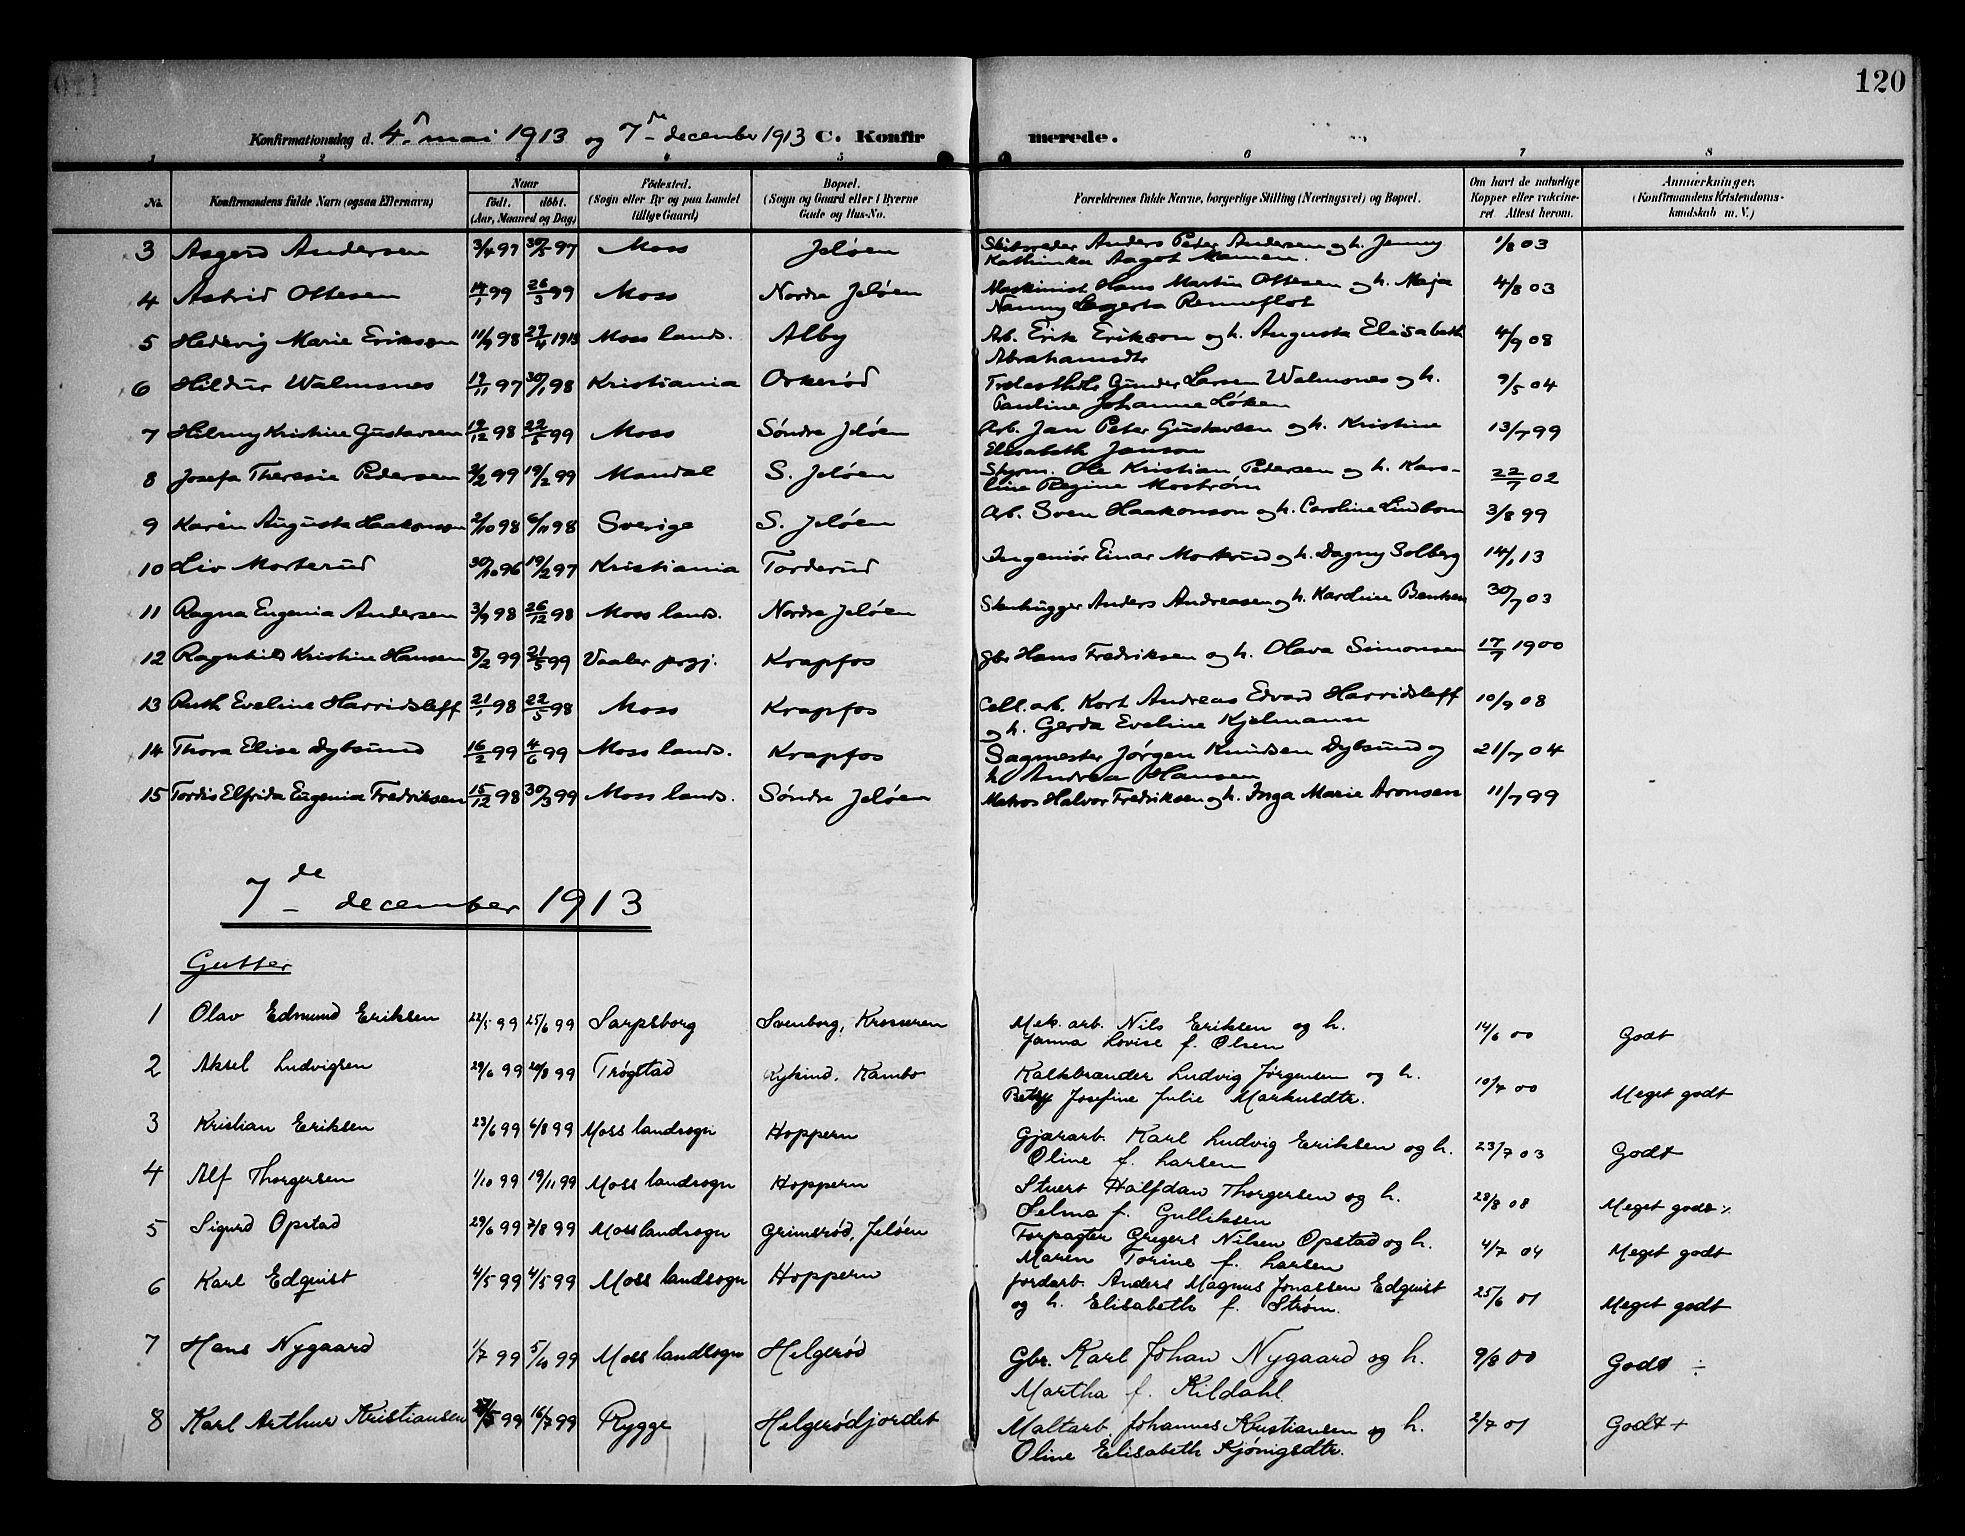 120
Konfirmationsdag d. 4. mai 1913 og 7de december 1913 C. Konfirmerede.
1 2 3 4 5 6 7 8
No. Konfirmandens fulde Navn (ogsaa Efternavn) Naar født. døbt. (Aar, Maaned og Dag) Fødested. (Sogn eller By og paa Landet tillige Gaard) Bopæl. (Sogn og Gaard eller i Byerne Gade og Hus-No. Forældrenes fulde Navne, borgerlige Stilling (Næringsvei) og Bopæl. Om havt de naturlige Kopper eller vakcineret. Attest herom. Anmærkninger. (Konfirmandens Kristendomskundskab m. V.)
3 Asgerd Andersen 3/4 97 30/5 97 Moss Jeløen Skibsreder Anders Peter Andersen og h. Jenny 1/8 03
Kathinka Aagot Mamen.
4 Astrid Ottesen 14/1 99 26/3 99 Moss Nordre Jeløen Maskinist Hans Martin Ottesen og h. Maja 4/8 03
Nanny Renneflot
5 Hedevig Marie Erikson 11/9 98 27/4 1913 Moss lands. Alby Arb. Erik Erikson og h. Augusta Elisabeth 4/9 08
Abrahamsdtr
6 Hildur Walmsnes 19/11 97 30/1 98 Kristiania Orkerød Trelasth. Gunder Larsen Walmsnes og h. 9/5 04
Pauline Johanne Løken
7 Hilmy Kristine Gustavsen 19/12 98 22/5 99 Moss Søndre Jeløen Arb. Jan Peter Gustavsen og h. Kristine 13/7 99
Elisabeth Janson
8 Josefa Theresie Pedersen 2/2 99 19/2 99 Mandal S. Jeløen Styrm. Ole Kristian Pedersen og h. Karo- 22/7 02
line Regine Mostrøm
9 Karen Augusta Haakonson 2/10 98 6/11 98 Sverige S. Jeløen Arb. Sven Haakonson og h. Caroline Lindbom 3/8 99
10 Liv Morterud 30/10 96 19/2 97 Kristiania Torderud Ingeniør Einar Morterud og h. Dagny Solberg 14/1 13
11 Ragna Eugenia Andersen 3/9 98 26/12 98 Moss lands. Nordre Jeløen Stenhugger Anders Andreasen og h. Karoline Bentsen 30/7 03
12 Ragnhild Kristine Hansen 8/2 99 21/5 99 Vaaler prgj. Krapfos Gbr Hans Fredriksen og h. Olava Simonsen 17/7 1900
13 Ruth Eveline Harridsleff 21/1 98 22/5 98 Moss Krapfos Cell. arb. Kort Andreas Edvard Harridsleff 10/9 08
og h. Gerda Eveline Kjelmann
14 Thora Elise Dybsund 16/2 99 4/6 99 Moss lands. Krapfos Sagmester Jørgen Knudsen Dybsund og 21/7 04
h. Andrea Hansen
15 Tordis Elfrida Eugenia Fredriksen 15/12 98 30/3 99 Moss lands. Søndre Jeløen Matros Halvor Fredriksen og h. Inga Marie Aronsen 11/7 99
7de december 1913
Gutter
1 Olav Edmund Eriksen 22/5 99 25/6 99 Sarpsborg Svenborg, Krosseren Mek. arb. Nils Eriksen og h. 14/6 00 Godt
Janna Lovise f. Olsen
2 Aksel Ludvigsen 29/6 99 20/8 99 Trøgstad Rykind, Kambo Kalkbrænder Ludvig Jørgensen og h. 10/7 00 Meget godt
Betsy Josefine Julie Markusdtr.
3 Kristian Eriksen 23/6 99 6/8 99 Moss landsogn Hoppern Gjærarb. Karl Ludvig Eriksen og h. 23/7 03 Godt
Oline f. Larsen
4 Alf Thorgersen 1/10 99 19/11 99 Moss landsogn Hoppern Stuert Halfdan Thorgersen og h. 28/8 08 Meget godt ÷
Selma f. Gulliksen
5 Sigurd Opstad 29/6 99 7/8 99 Moss landsogn Grimsrød, Jeløen Forpagter Gregers Nilsen Opstad og h. 4/7 04 Meget godt
Maren Torine f. Larsen
6 Karl Edquist 4/5 99 4/5 99 Moss landsogn Hoppern Jordarb. Anders Magnus Jonassen Edquist 25/6 01 Meget godt
og h. Elisabeth f. Strøm.
7 Hans Nygaard 1/7 99 5/10 99 Moss landsogn Helgerød Gbr. Karl Johan Nygaard og h. 9/8 00 Godt ÷
Martha f. Kildahl
8 Karl Arthur Kristiansen /5 99 16/7 99 Rygge Helgerødjordet Maltarb. Johannes Kristiansen og h. 2/7 01 Godt +
Oline Elisabeth Kjønigsdtr.